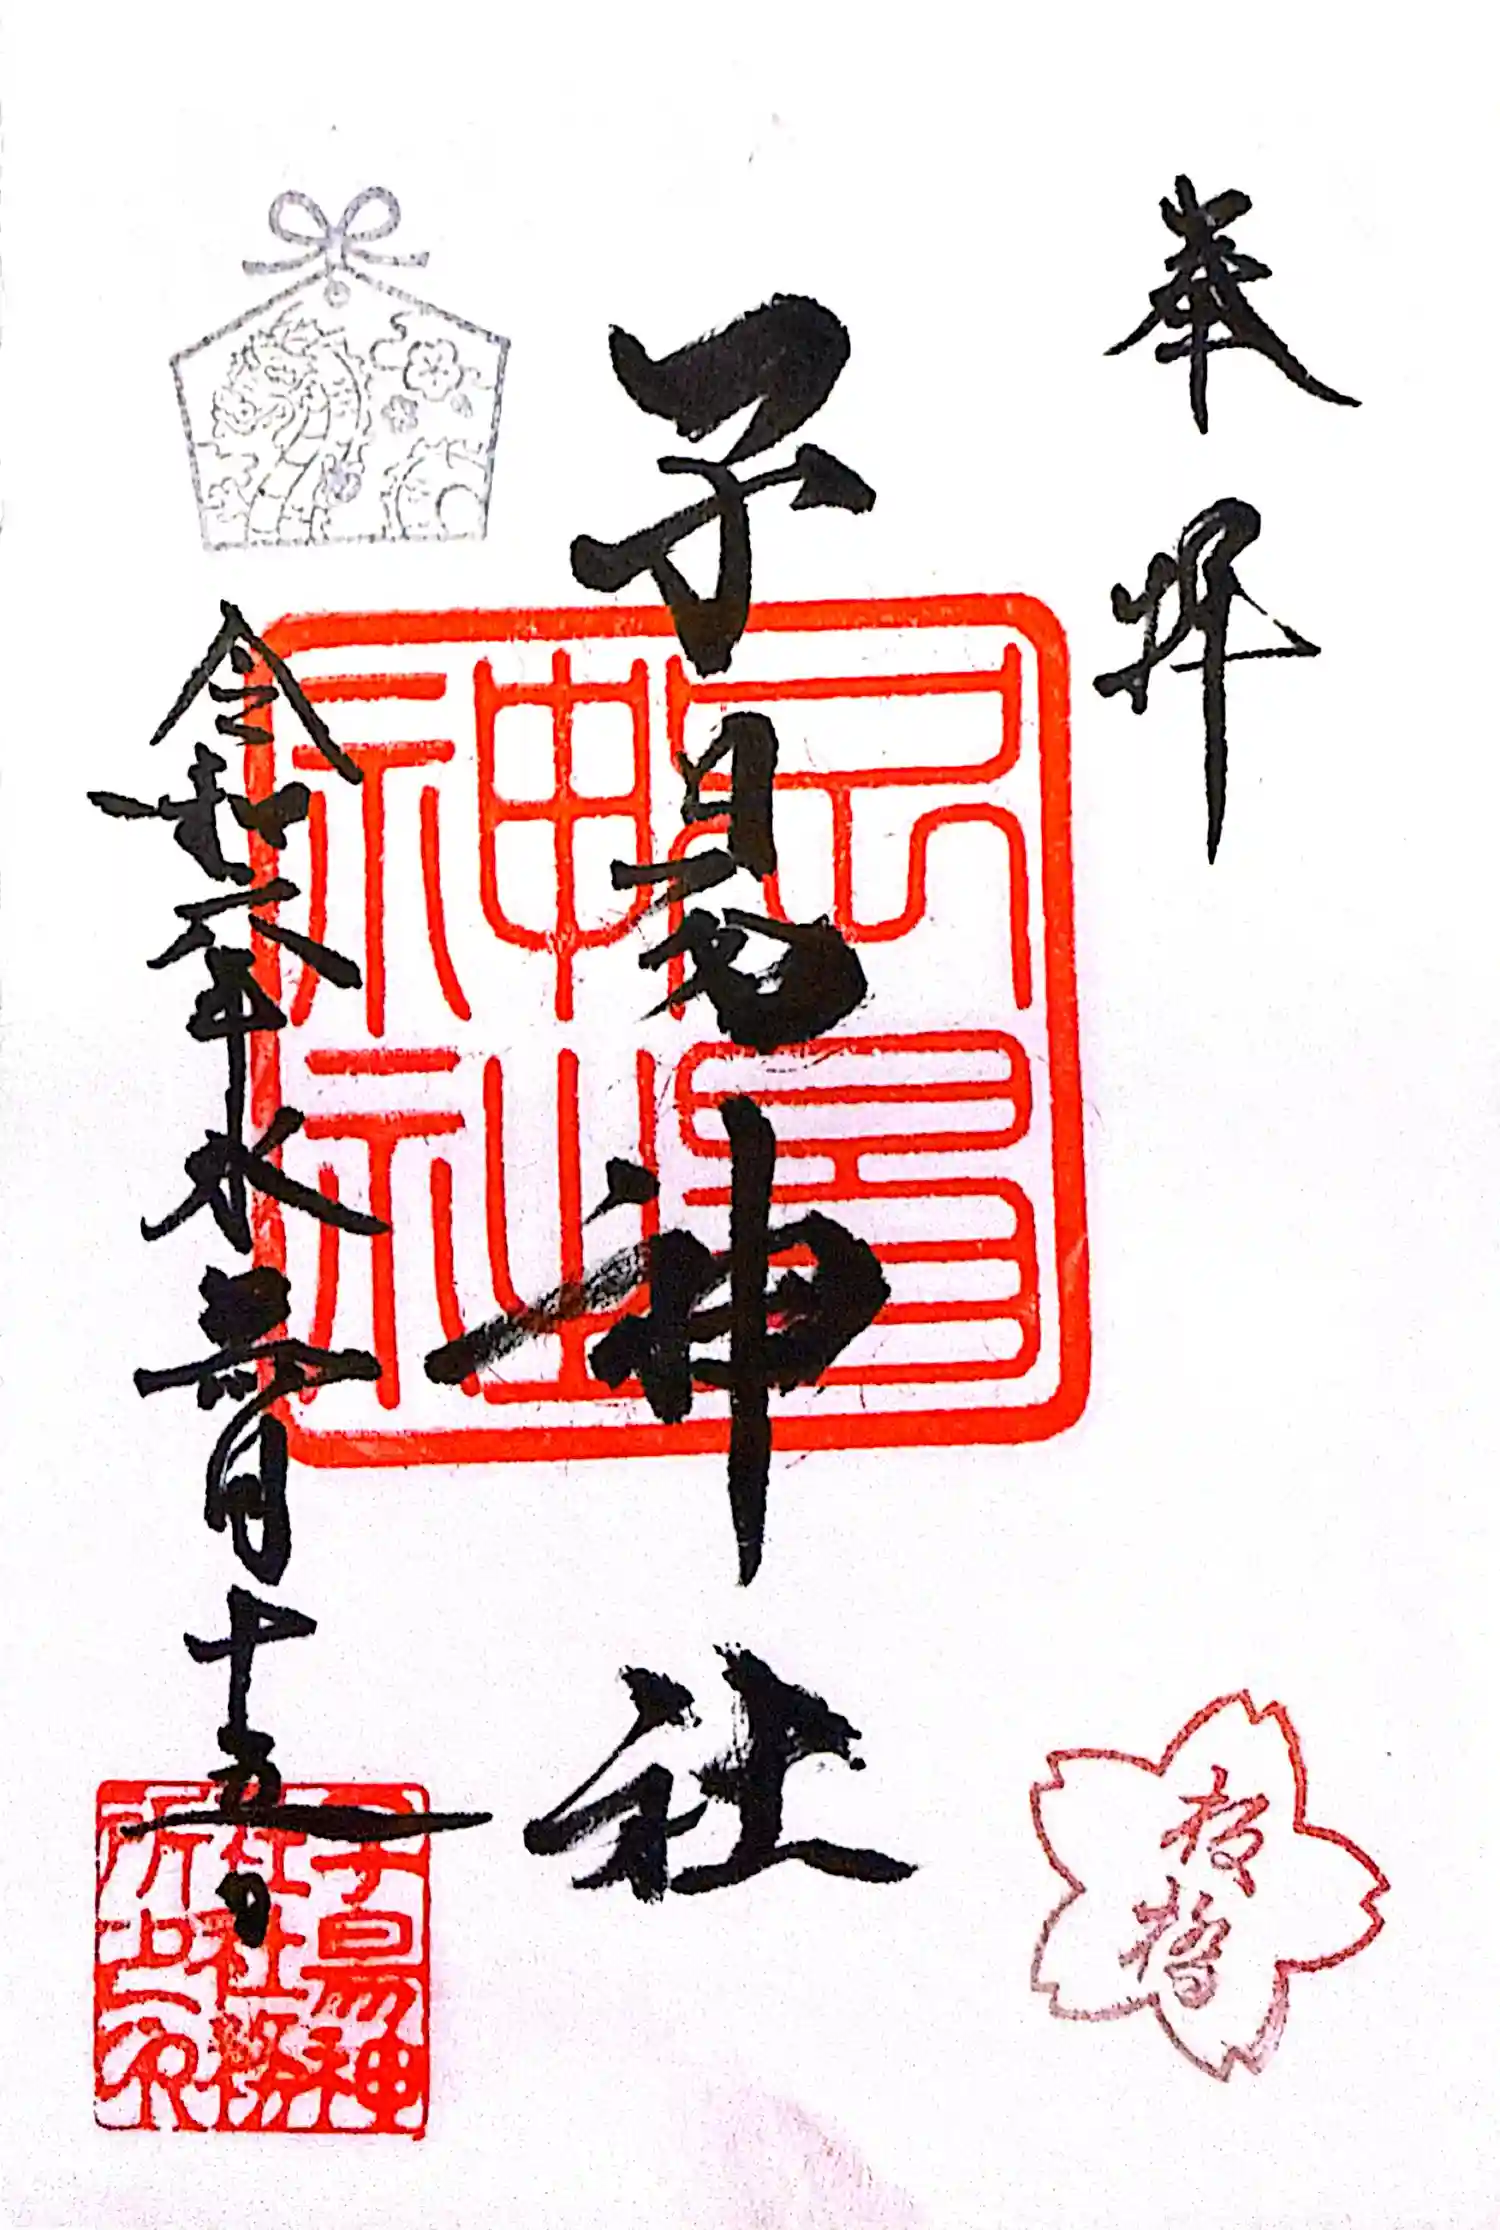 奉拝
板橋
子易神社
子易
神社
令和六年水無月十五日
子易神
社社務
所之印